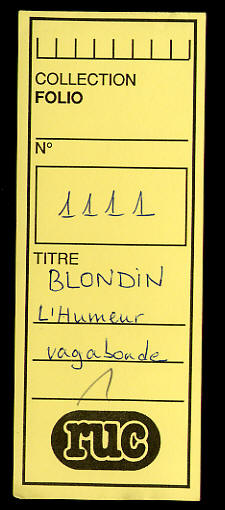 COLLECTION
FOLIO
N°
1111
TITRE
BLONDIN
L'Humeur
vagabonde
1
ruc